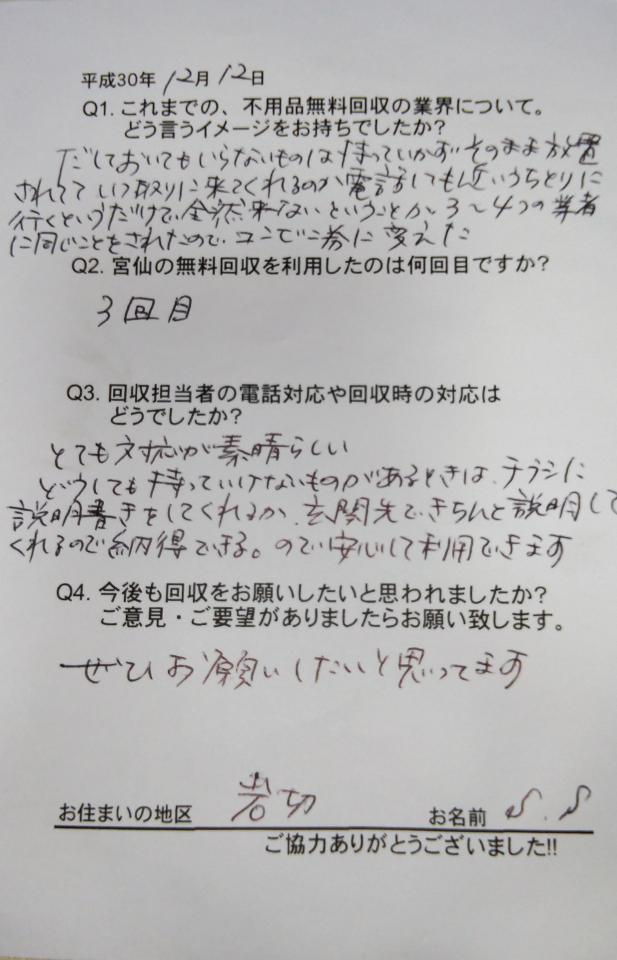 平成30年 12月 12日
Q1. これまでの、不用品無料回収の業界について。
どう言うイメージをお持ちでしたか?
だしておいてもいらないものは持っていかず そのまま放置
されてて いつ取りに来てくれるのか電話しても近いうちとりに
行くというだけで全然来ないということが、3〜4つの業者
に同じことをされたので、
に変えた
Q2. 宮仙の無料回収を利用したのは何回目ですか?
3回目
Q3. 回収担当者の電話対応や回収時の対応は
どうでしたか?
とても対応が素晴らしい
どうしても持っていけないものがあるときは、チラシに
説明書きをしてくれるか、玄関先できちんと説明して
くれるので納得できる。ので安心して利用できます
Q4. 今後も回収をお願いしたいと思われましたか?
ご意見・ご要望がありましたらお願い致します。
ぜひお願いしたいと思ってます
お住まいの地区 岩切 お名前 S.S
ご協力ありがとうございました!!